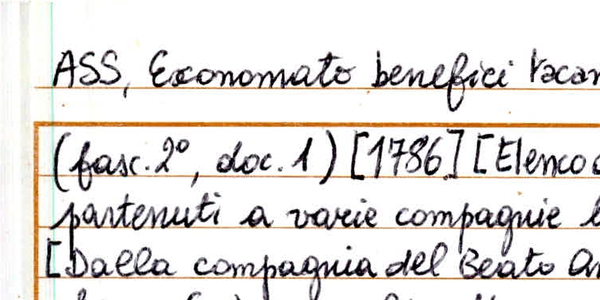 ASS, Economato benefici vacan
(fasc. 2°, doc. 1) [1786] [Elenco
partenuti a varie compagnie
[Dalla compagnia del Beato An